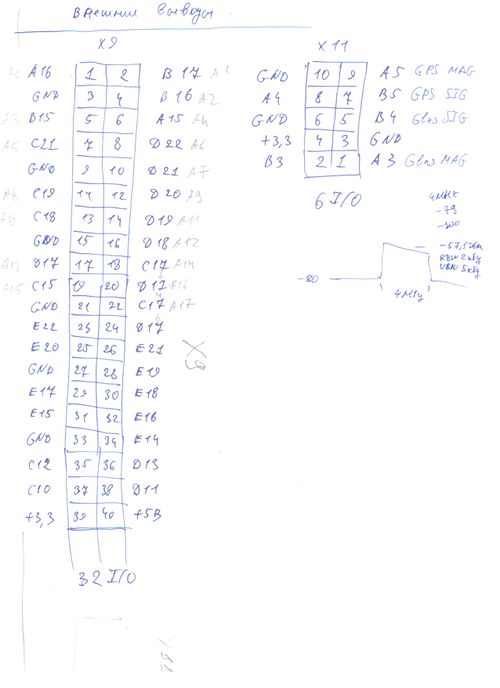 Внешние выводы
X9
A16 1 2 B17 A1
GND 3 4 B16 A2
A3 B15 5 6 A15 A4
A5 C21 7 8 D22 A6
GND 9 10 D21 A7
A8 C19 11 12 D20 A9
C18 13 14 D19 A11
GND 15 16 D18 A12
A13 D17 17 18 C17 A14
A15 C15 19 20
GND 21 22 C17 A17
E22 23 24 D17
E20 25 26 E21
GND 27 28 E19
E17 29 30 E18
E15 31 32 E16
GND 33 34 E14
C12 35 36 D13
C10 37 38 D11
+3,3 39 40 +5В
32 I/O
X9
X11
GND 10 9 A5 GPS MAG
A4 8 7 B5 GPS SIG
GND 6 5 B4 Glos SIG
+3,3 4 3 GND
B3 2 1 A3 Glos MAG
6 I/O
-79
-100
-20
4МГц